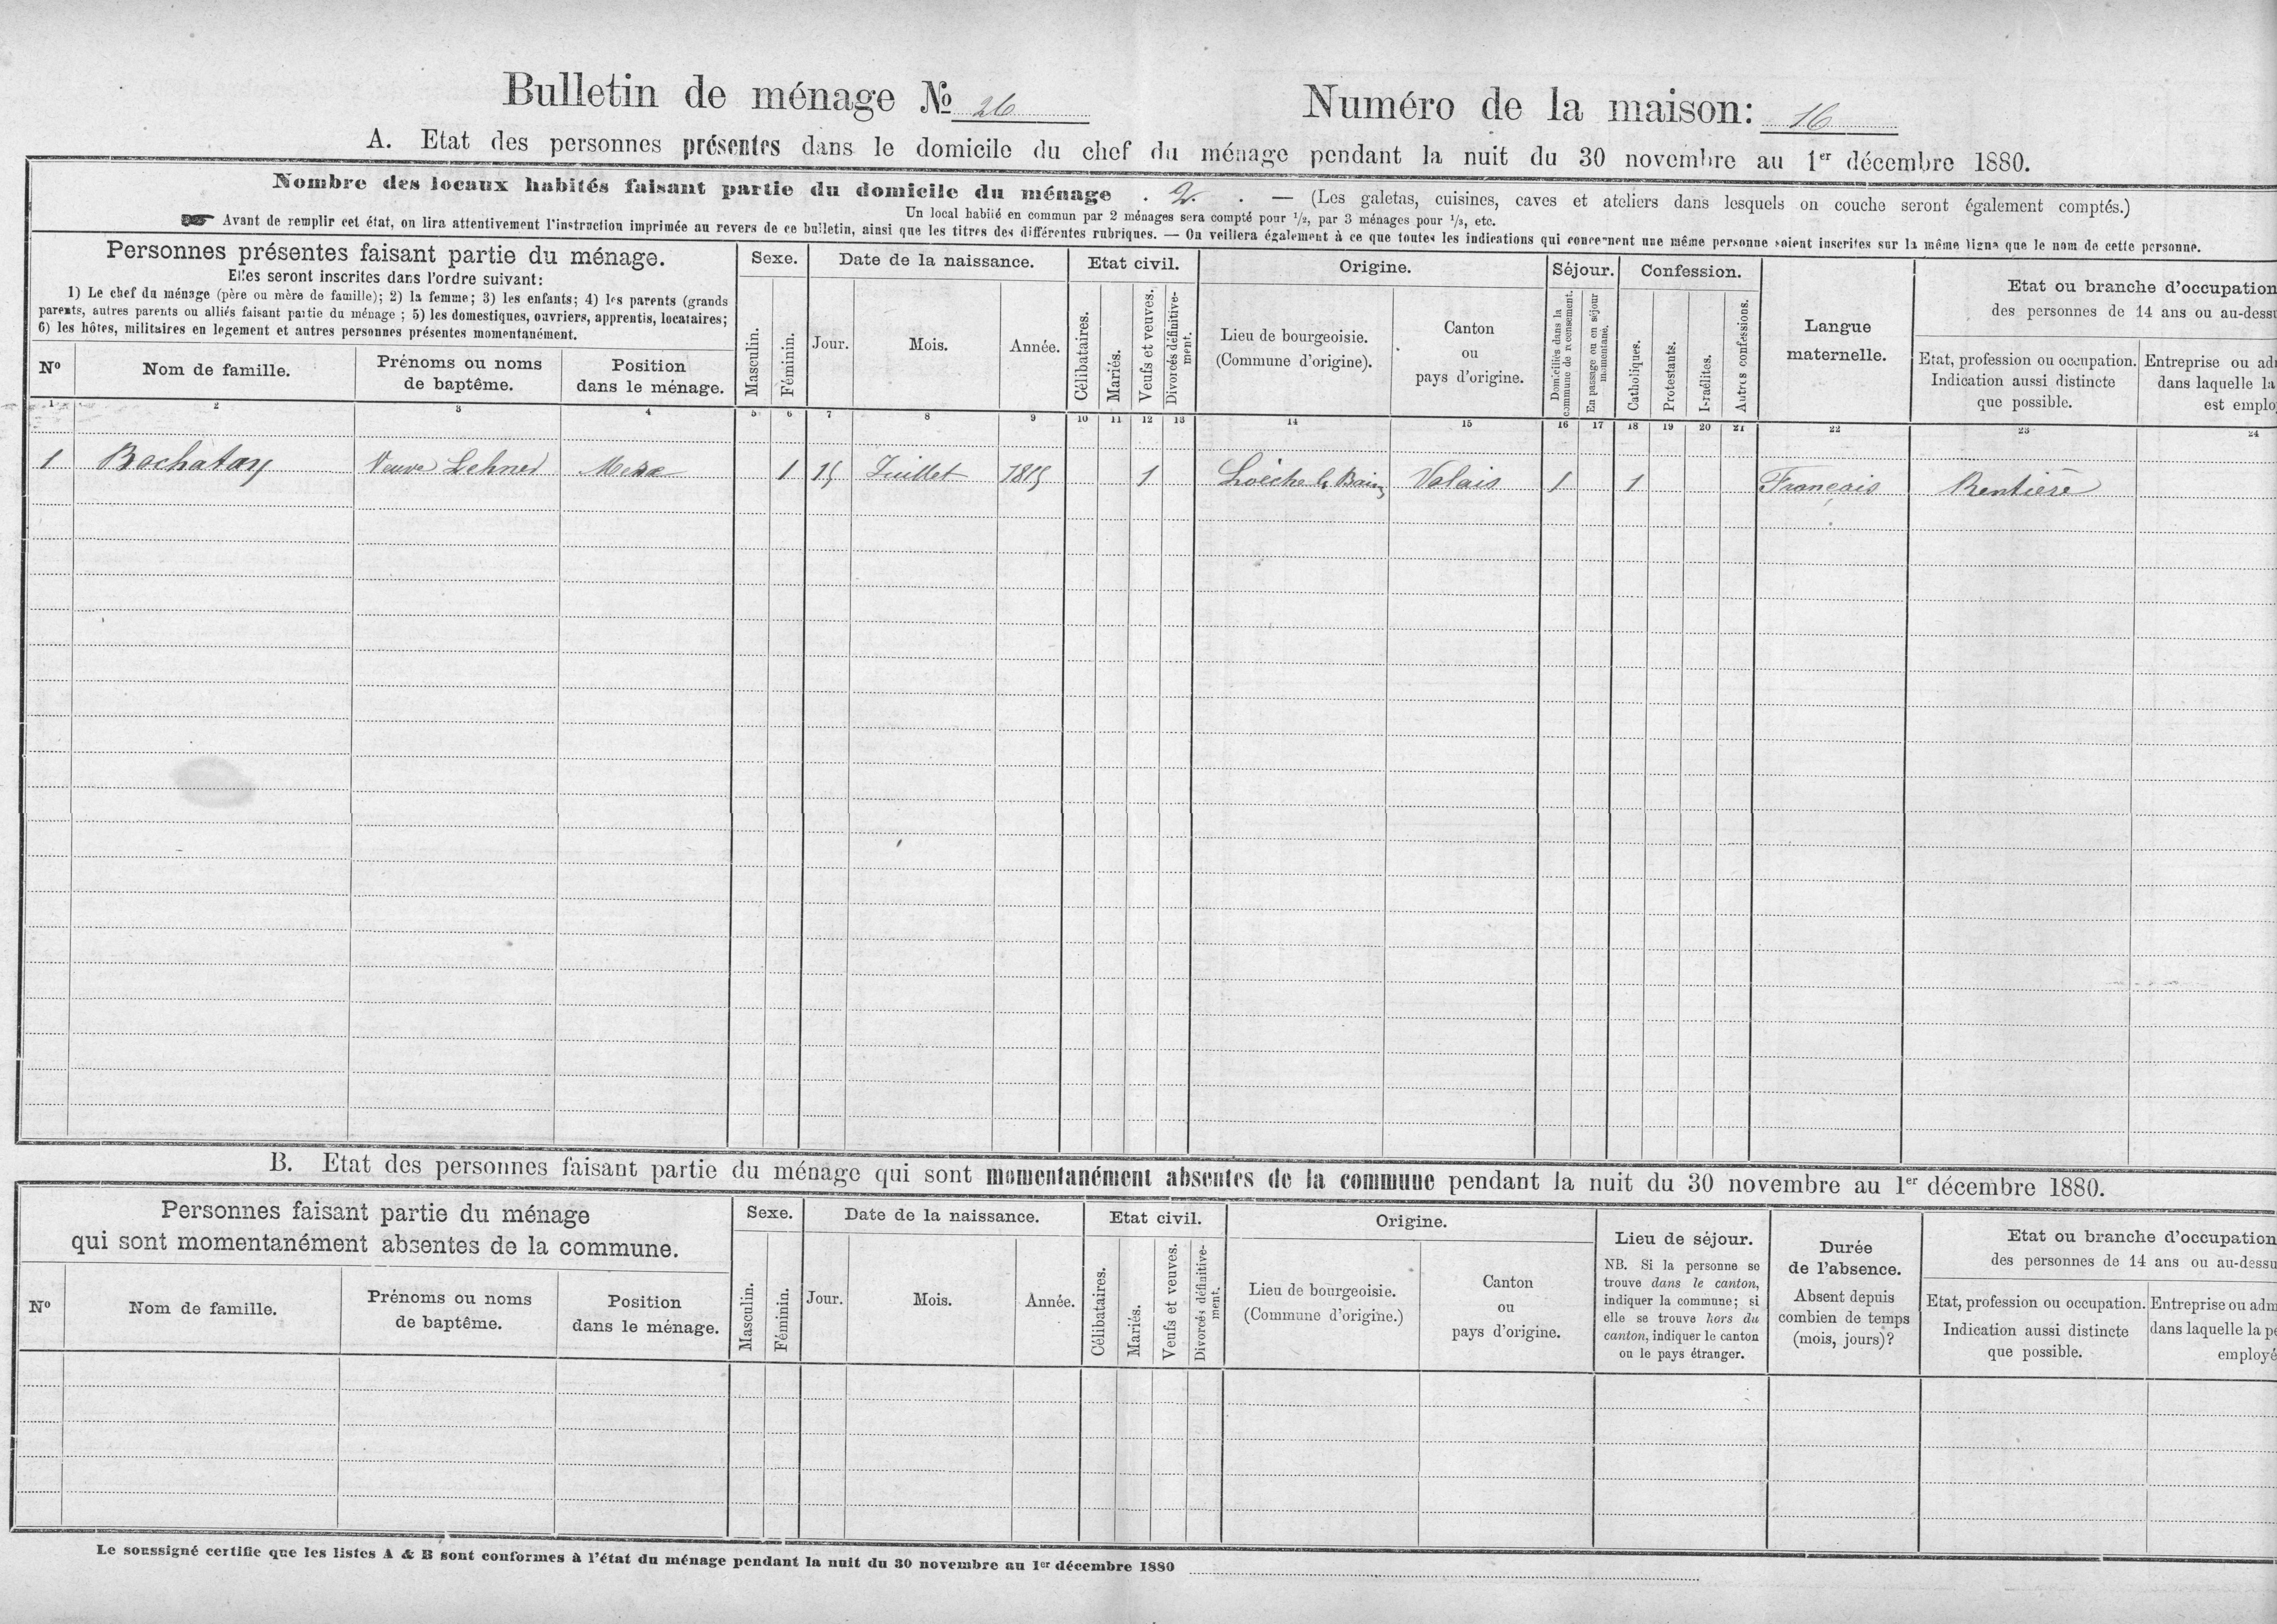 Bulletin de ménage No 26
Numéro de la maison: 16
A. Etat des personnes présentes dans le domicile du chef du ménage pendant la nuit du 30 novembre au 1er décembre 1880.
Nombre des locaux habités faisant partie du domicile du ménage . 2. . — (Les galetas, cuisines, caves et ateliers dans lesquels on couche seront également comptés.)
Un local habité en commun par 2 ménages sera compté pour 1/2, par 3 ménages pour 1/3, etc.
Avant de remplir cet état, on lira attentivement l'instruction imprimée au revers de ce bulletin, ainsi que les titres des différentes rubriques. — On veillera également à ce que toutes les indications qui concernent une même personne soient inscrites sur la même ligne que le nom de cette personne.
Personnes présentes faisant partie du ménage.
Elles seront inscrites dans l'ordre suivant:
1) Le chef du ménage (père ou mère de famille); 2) la femme; 3) les enfants; 4) les parents (grands
parents, autres parents ou alliés faisant partie du ménage; 5) les domestiques, ouvriers, apprentis, locataires;
6) les hôtes, militaires en logement et autres personnes présentes momentanément.
No
Nom de famille.
Prénoms ou noms
de baptême.
Position
dans le ménage.
Sexe.
Masculin.
Féminin.
Date de la naissance.
Jour.
Mois.
Année.
Etat civil.
Célibataires.
Mariés.
Veufs et veuves.
Divorcés définitive-
ment.
Origine.
Lieu de bourgeoisie.
(Commune d'origine).
Canton
ou
pays d'origine.
Séjour.
Domiciliés dans la
commune de recensement.
En passage ou en séjour
momentané.
Confession.
Catholiques.
Protestants.
Israélites.
Autres confessions.
Langue
maternelle.
Etat ou branche d'occupation
des personnes de 14 ans ou au-dessu
Etat, profession ou occupation.
Indication aussi distincte
que possible.
Entreprise ou adm
dans laquelle la
est employ
1 2 3 4 5 6 7 8 9 10 11 12 13 14 15 16 17 18 19 20 21 22 23 24
1 Bochatay Veuve Lehner Mère 1 15 Juillet 1815 1 Loèche les Bains Valais 1 1 Français Rentière
B. Etat des personnes faisant partie du ménage qui sont momentanément absentes de la commune pendant la nuit du 30 novembre au 1er décembre 1880.
Personnes faisant partie du ménage
qui sont momentanément absentes de la commune.
No
Nom de famille.
Prénoms ou noms
de baptême.
Position
dans le ménage.
Sexe.
Masculin.
Féminin.
Date de la naissance.
Jour.
Mois.
Année.
Etat civil.
Célibataires.
Mariés.
Veufs et veuves.
Divorcés définitive-
ment.
Origine.
Lieu de bourgeoisie.
(Commune d'origine.)
Canton
ou
pays d'origine.
Lieu de séjour.
NB. Si la personne se
trouve dans le canton,
indiquer la commune; si
elle se trouve hors du
canton, indiquer le canton
ou le pays étranger.
Durée
de l'absence.
Absent depuis
combien de temps
(mois, jours)?
Etat ou branche d'occupation
des personnes de 14 ans ou au-dessu
Etat, profession ou occupation.
Indication aussi distincte
que possible.
Entreprise ou adm
dans laquelle la pe
employé
Le soussigné certifie que les listes A & B sont conformes à l'état du ménage pendant la nuit du 30 novembre au 1er décembre 1880